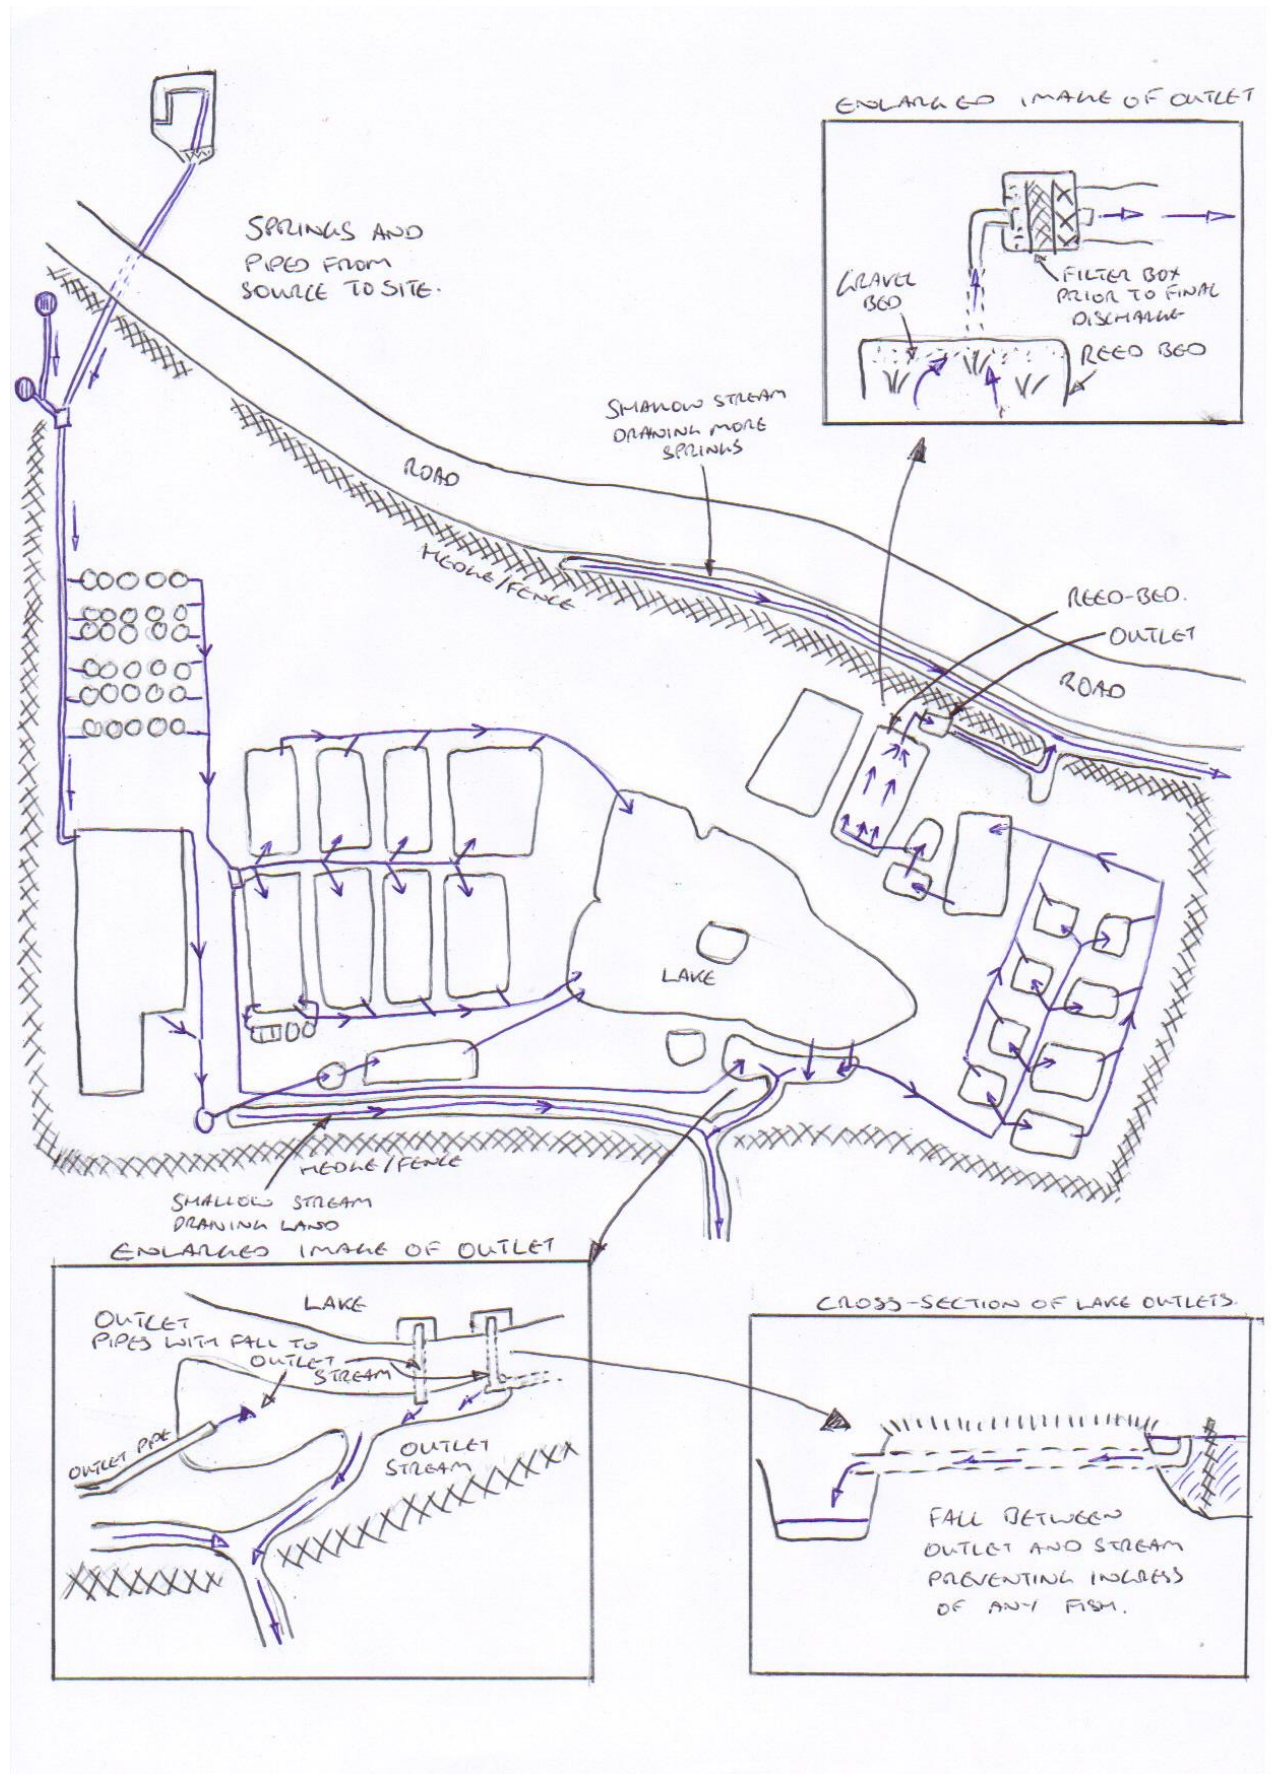 ENLARGED IMAGE OF OUTLET
SPRINGS AND
PIPED FROM
SOURCE TO SITE.
GRAVEL
BED
FILTER BOX
PRIOR TO FINAL
DISCHARGE
REED BED
SHALLOW STREAM
DRAINING MORE
SPRINGS
ROAD
HEDGE/FENCE
REED-BED.
OUTLET
ROAD
LAKE
HEDGE/FENCE
SHALLOW STREAM
DRANING LAND
ENLARGED IMAGE OF OUTLET
LAKE
OUTLET
PIPES WITH FALL TO
OUTLET
STREAM
OUTLET PIPE
OUTLET
STREAM
CROSS-SECTION OF LAKE OUTLETS.
FALL BETWEEN
OUTLET AND STREAM
PREVENTING INGRESS
OF ANY FISH.